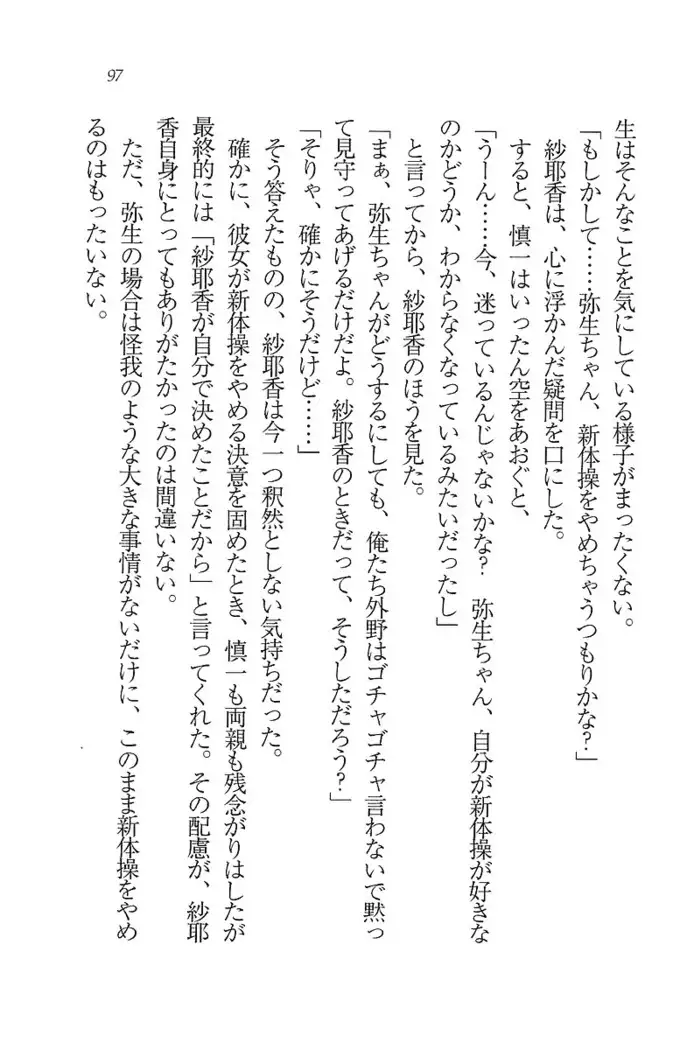 97
生はそんなことを気にしている様子がまったくない。
「もしかして……弥生ちゃん、新体操をやめちゃうつもりかな?」
紗耶香は、心に浮かんだ疑問を口にした。
すると、慎一はいったん空をあおぐと、
「うーん……今、迷っているんじゃないかな? 弥生ちゃん、自分が新体操が好きな
のかどうか、わからなくなっているみたいだったし」
と言ってから、紗耶香のほうを見た。
「まぁ、弥生ちゃんがどうするにしても、俺たち外野はゴチャゴチャ言わないで黙っ
て見守ってあげるだけだよ。紗耶香のときだって、そうしただろう?」
「そりゃ、確かにそうだけど……」
そう答えたものの、紗耶香は今一つ釈然としない気持ちだった。
確かに、彼女が新体操をやめる決意を固めたとき、慎一も両親も残念がりはしたが
最終的には「紗耶香が自分で決めたことだから」と言ってくれた。その配慮が、紗耶
香自身にとってもありがたかったのは間違いない。
ただ、弥生の場合は怪我のような大きな事情がないだけに、このまま新体操をやめ
るのはもったいない。